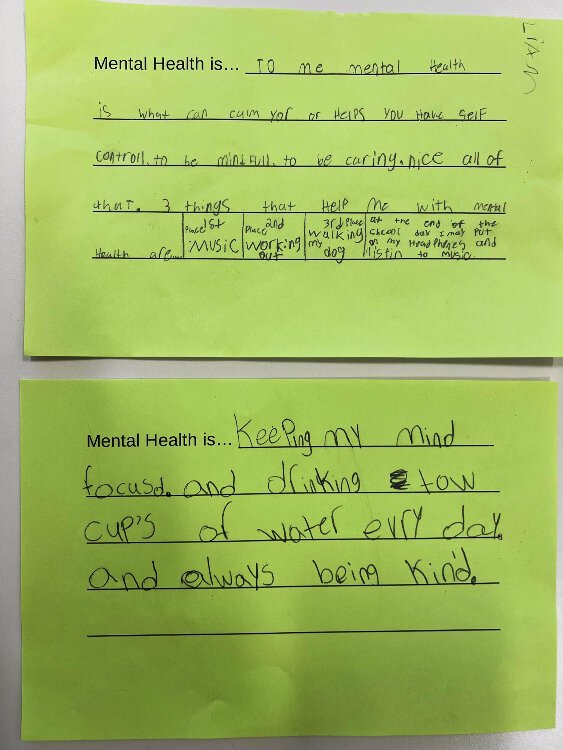 LiAM
Mental Health is... TO me mental Health
is what can calm yor or HelPs you Have self
controll. to be mindfull. to be caring. nice all of
that. 3 things that HelP me with mental
Health are....
Place 1st
MUSiC
2nd
Place
working
out
3rd Place
walking
my
dog
at the end of the
chcool day I may Put
on my HeadPhones and
listin to music
Mental Health is... KeePing my mind
focusd. and drinking tow
cup's of water evry day.
and always being kind.